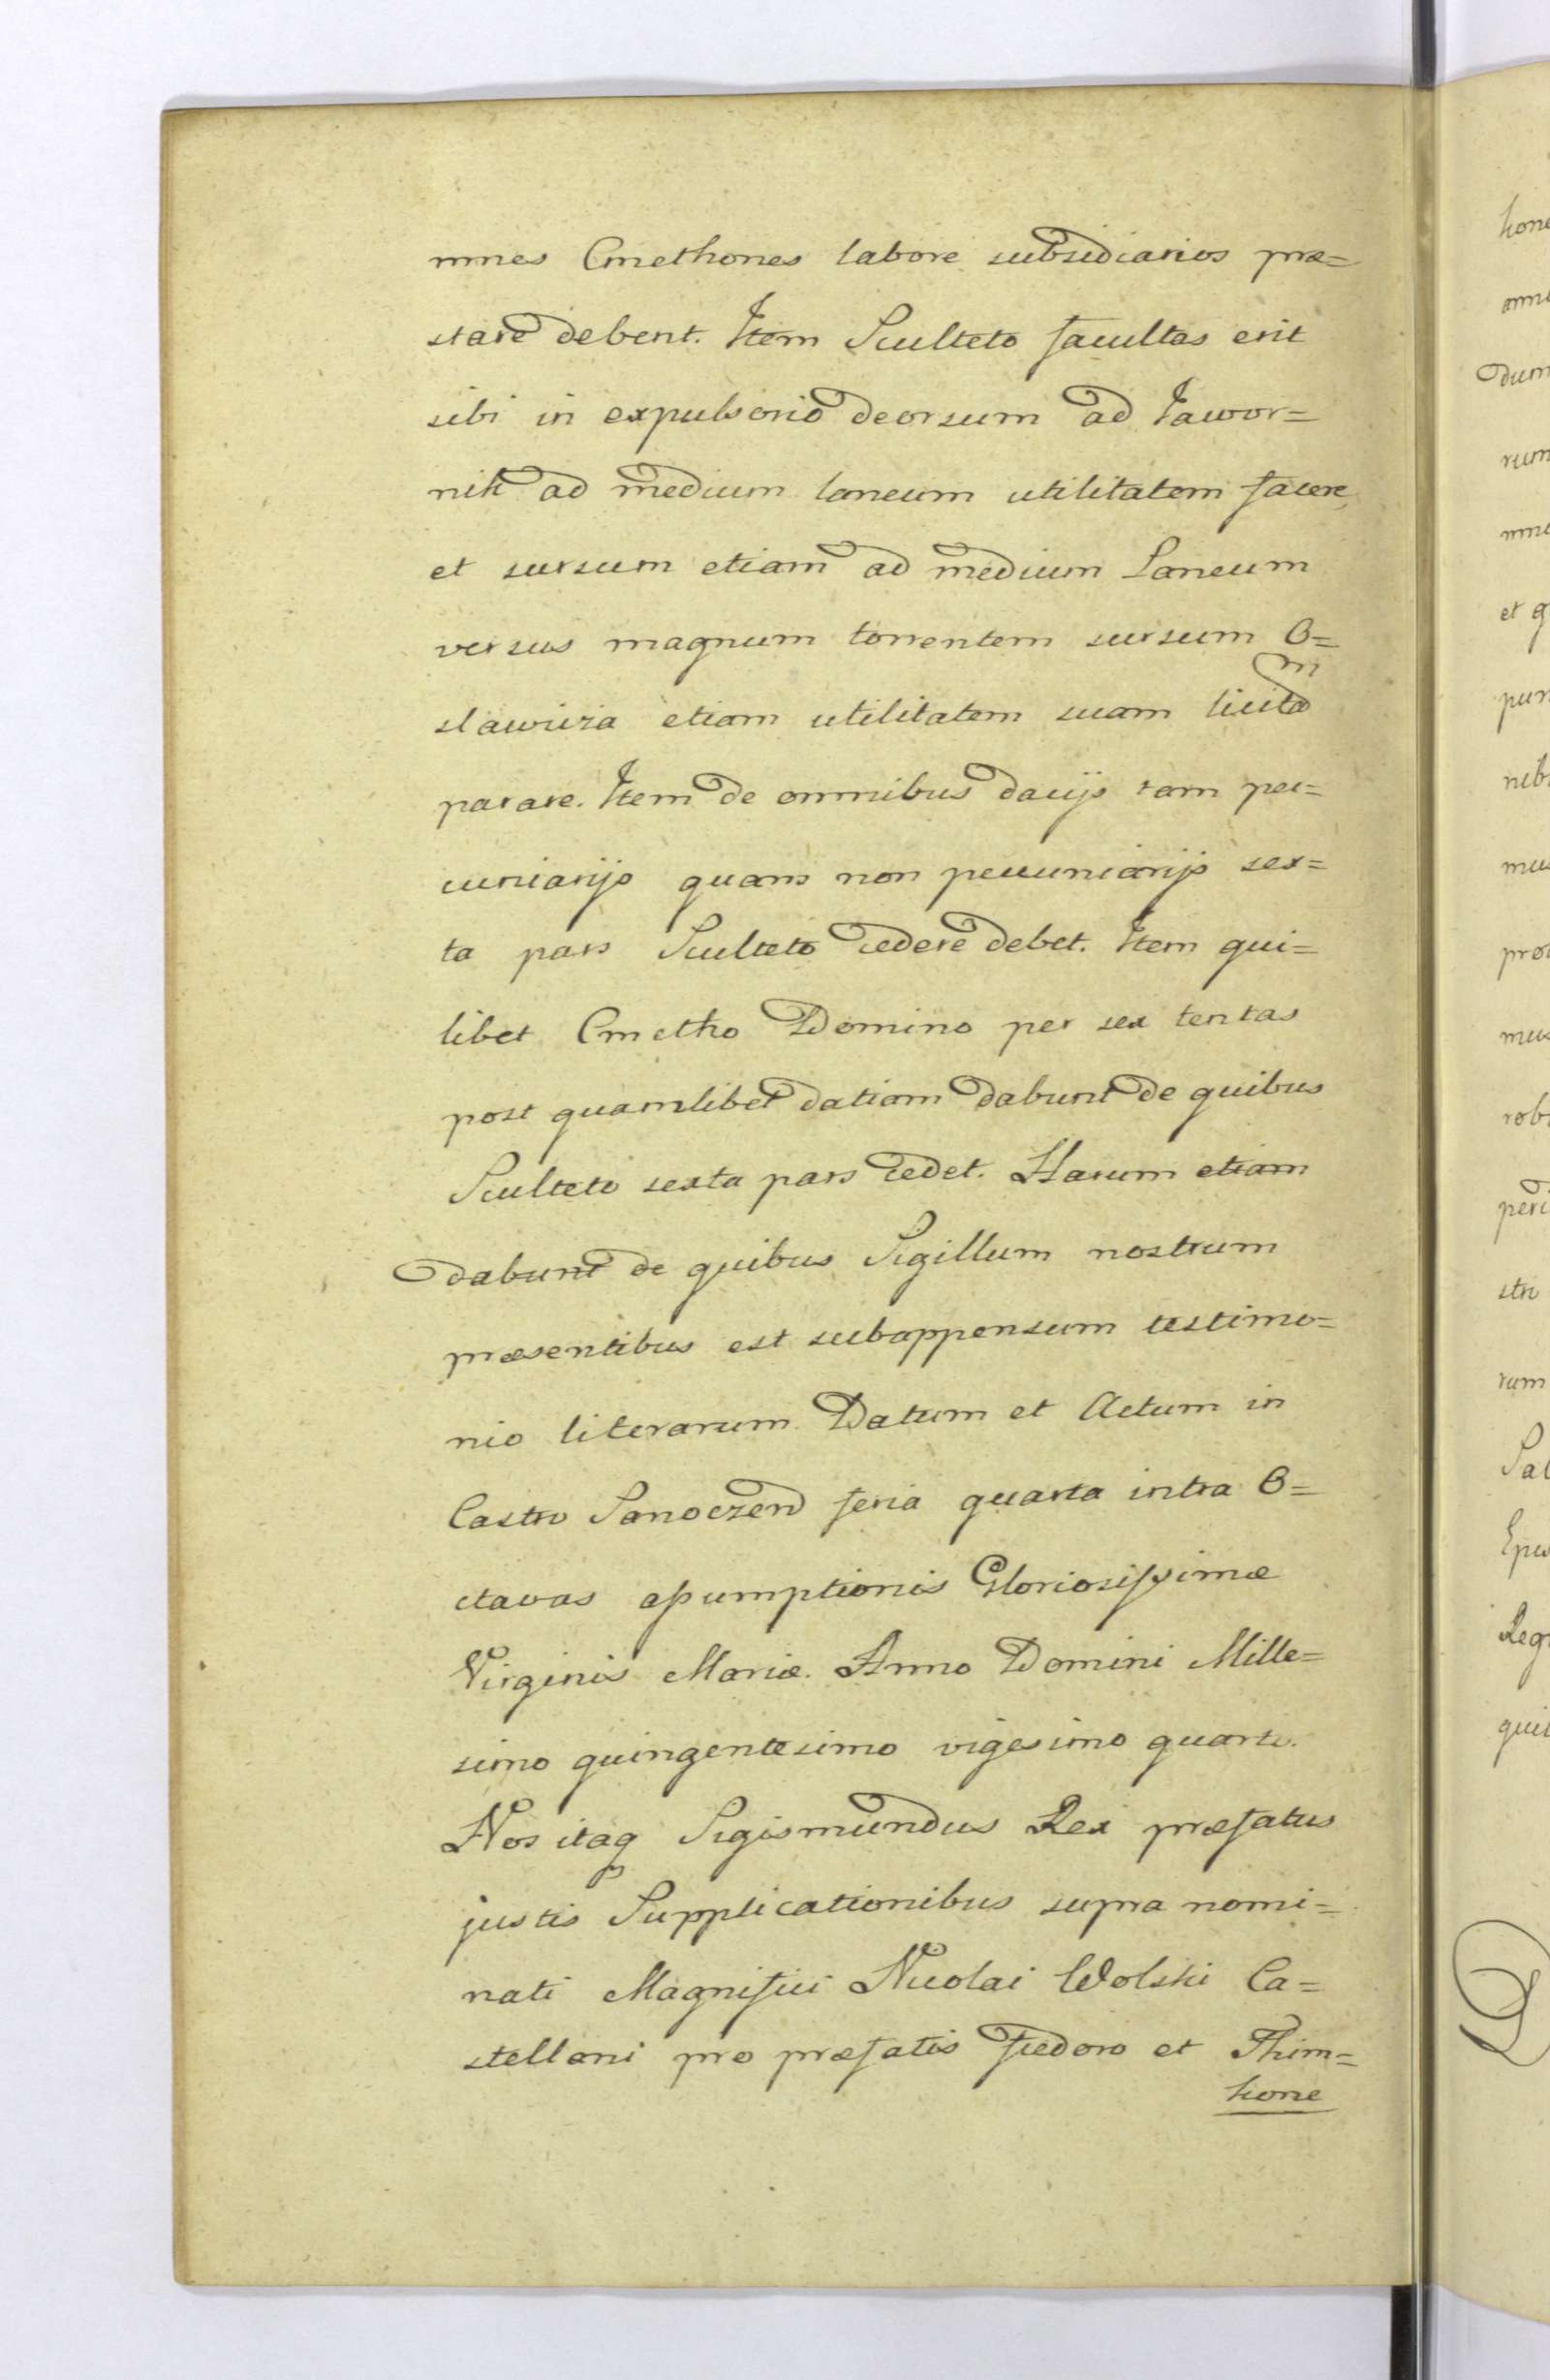 mnes Cmethones labore subsidiarios præ=
stare debent. Item Sculteto facultas erit
sibi in expulsorio deorsum ad Jawor=
nik ad medium laneum utilitatem facere,
et sursum etiam ad medium Laneum
versus magnum torrentem sursum O=
slawicza etiam utilitatem suam licitã
parare. Item de omnibus dacijs tam pec=
cuniarijs quam non peccuniarijs sex=
ta pars Sculteto cedere debet. Item qui=
libet Cmetho Domino per sex tentas
post quamlibet datiam dabunt de quibus
Sculteto sexta pars cedet. Harum etiam
dabunt de quibus Sigillum nostrum
præsentibus est subappensum testimo=
nio literarum. Datum et Actum in
Castro Sanoczen feria quarta intra O=
ctavas assumptionis Gloriosissimæ
Virginis Mariæ. Anno Domini Mille=
simo quingentesimo vigesimo quarto.
Nos itaq Sigismundus Rex præfatus
justis Supplicationibus supra nomi=
nati Magnifici Nicolai Wolski Ca=
stellani pro præfatis Fiedoro et Thim=
kone
hone
dum
rum
et q